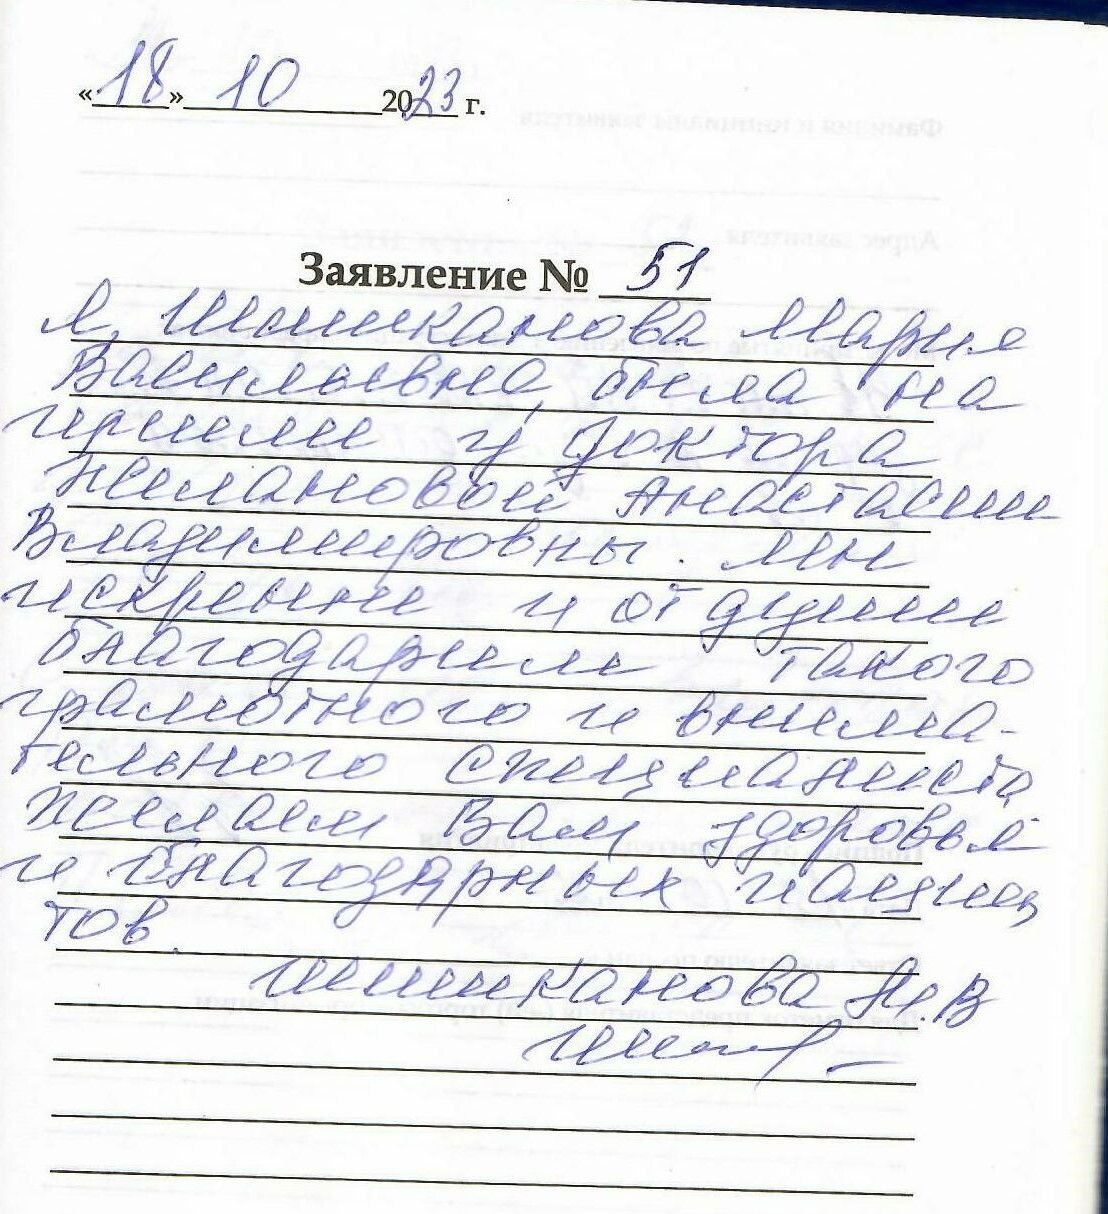 «18» 10 2023 г.
Заявление № 51
Я, Шишканова Мария
Васильевна, была на
приеме у доктора
Желановой Анастасии
Владимировны. Мы
искренне и от души
благодарим такого
грамотного и внима-
тельного специалиста
желаем Вам здоровья
и благодарных пациен
тов.
Шишканова М.В